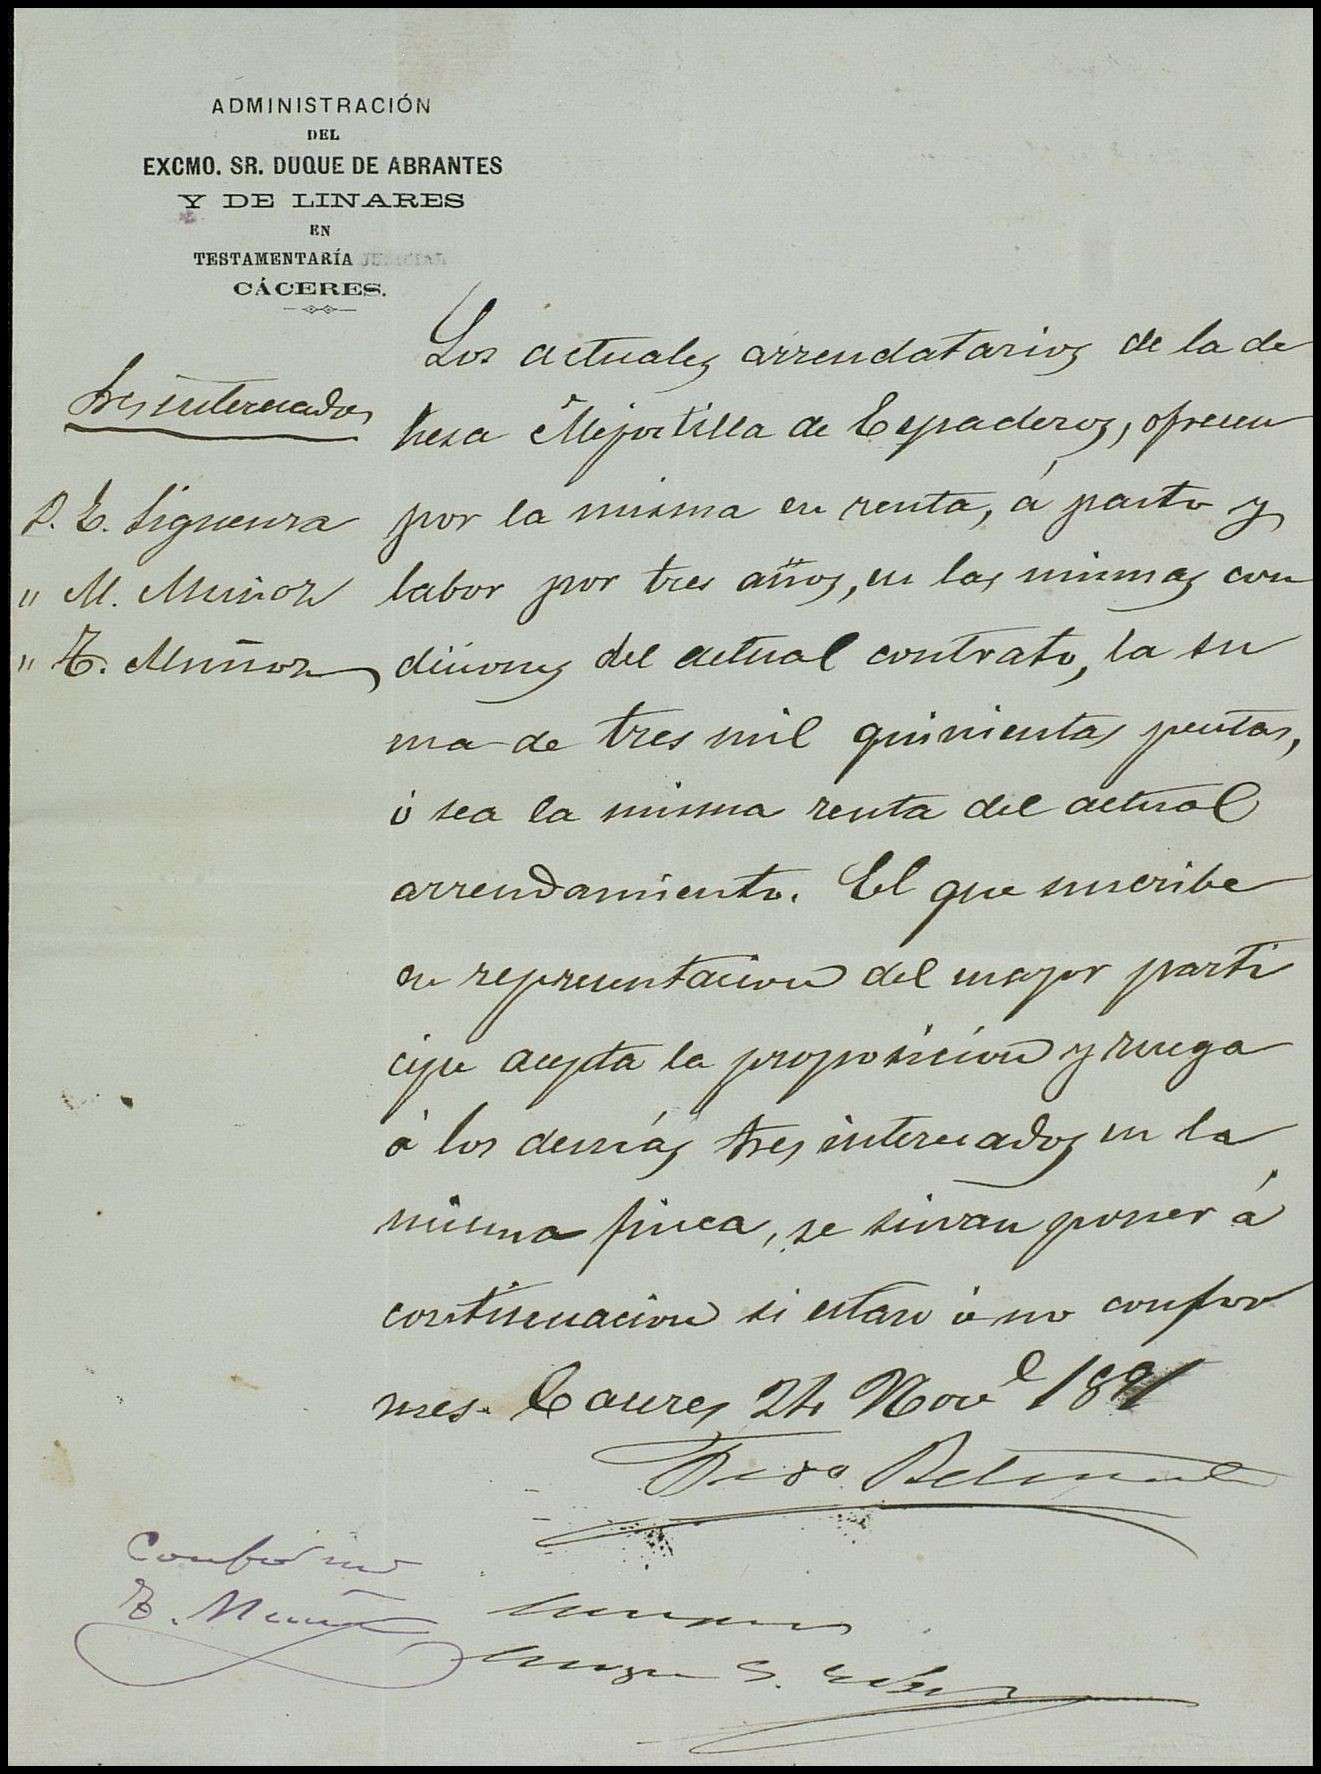 ADMINISTRACIÓN
DEL
EXCMO. SR. DUQUE DE ABRANTES
Y DE LINARES
EN
TESTAMENTARÍA JUDICIAL
CÁCERES.
Sres interesados
D. E. Siguenza
" M. Muñoz
" T. Muñoz
Los actuales arrendatarios de la de
hesa Mejostilla de Espaderos, ofrecen
por la misma en renta, á pasto y
labor por tres años, en las mismas con
diciones del actual contrato, la su
ma de tres mil quinientas pesetas,
ó sea la misma renta del actual
arrendamiento. El que suscribe
en representacion del mayor parti
cipe acepta la proposicion y ruega
á los demás Sres interesados en la
misma finca, se sirvan poner á
continuacion si estan ó no confor
mes. Caceres 24 Nove 1891
Conforme
T. Muñoz